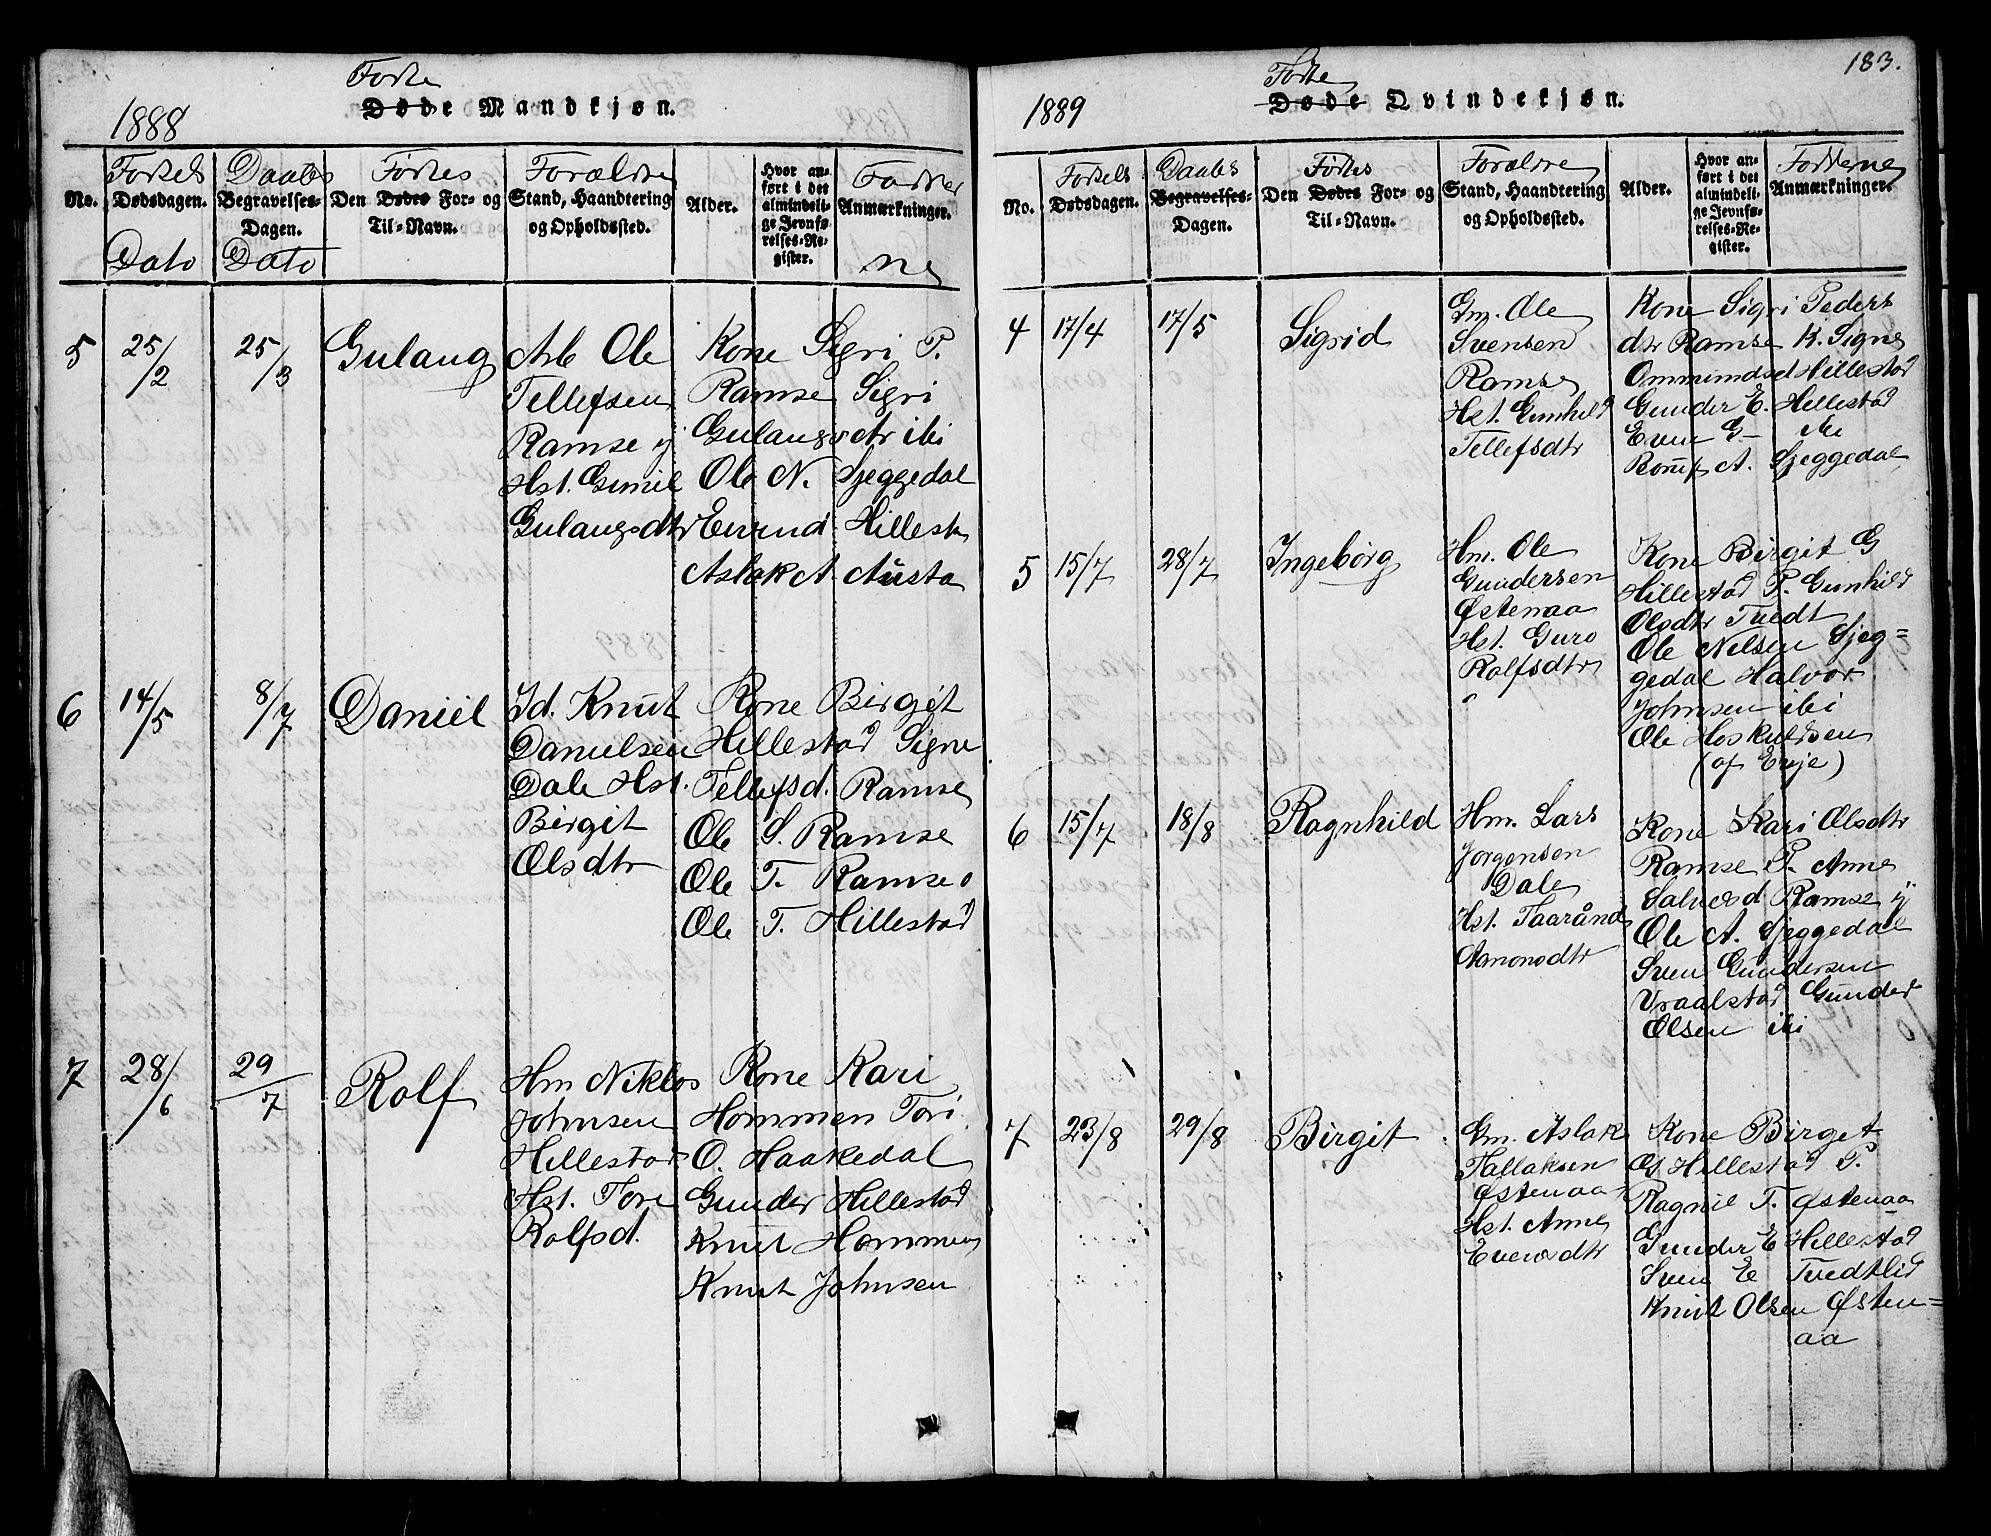 Fødte
1888 Døde Mandkjøn.
No.
Fødsels Dødsdagen. Dato
Daabs Begravelses-Dagen. Dato
Fødtes
Den Dødes For- og Til-Navn.
Forældre
Stand, Haandtering og Opholdssted.
Alder.
Hvor anført i det almindelige Jevnførelses-Register.
Fadderne
Anmærkninger.
5 25/2 25/3 Gulaug
Arb Ole
Tellefsen
Ramse y
Hst. Gunil
Gulaugsdtr
Kone Sigri P.
Ramse Sigri
Gulaugsdtr ibi
Ole N. Sjeggedal
Eivind Hillest
Aslak A. Austa
6 14/5 8/7 Daniel
Id. Knut
Danielsen
Dale Hst.
Birgit
Olsdtr
Kone Birgit
Hillestad Signe
Tellefsd. Ramse
Ole S. Ramse
Ole T. Ramse
Ole T. Hillestad
7 28/6 29/7 Rolf
Hm Niklos
Johnsen
Hillestad
Hst. Tore
Rolfsd.
Kone Kari
Hommen Tori
O. Haakedal
Gunder Hillestad
Knut Hommen
Knut Johnsen
183.
Fødte
1889 Døde Qvindekjøn.
No.
Fødsels Dødsdagen.
Daabs Begravelses-Dagen.
Fødtes
Den Dødes For- og Til-Navn.
Forældre
Stand, Haandtering og Opholdssted.
Alder.
Hvor anført i det almindelige Jevnførelses-Register.
Fadderne
Anmærkninger.
4 17/4 17/5 Sigrid
Gm. Ole
Svensen
Ramse
Hst. Gunhild
Tellefsdtr
Kone Sigri Peders
dtr Ramse K. Signe
Ommundsd Hillestad
Gunder E. Hillestad
Even G- ibi
A. Sjeggedal
5 15/7 28/7 Ingeborg
Hm. Ole
Gundersen
Østenaa
Hst. Guro
Rolfsdtr
Kone Birgit G
Hillestad P. Gunhild
Olsdtr Tvedt
Ole Nilsen Sjeg=
gedal Halvor
Johnsen ibi
Ole Hoskuldsen
(af Evje)
6 15/7 18/8 Ragnhild
Hm. Lars
Jørgensen
Dale
Hst. Taarånd
Aanonsdtr
Kone Kari Olsdtr
Ramse P. Anne
Salvesd Ramse y
Ole A. Sjeggedal
Sven Gundersen
Vraalstad Gunder
Olsen ibi
7 23/8 29/8 Birgit
Gm. Aslak
Tallaksen
Østenaa
Hst. Anne
Evensdtr
Kone Birget
O. Hillestad P.
Ragnil T. Østenaa
Gunder E Hillestad
Sven E Tvedtlid
Knut Olsen Østen=
aa